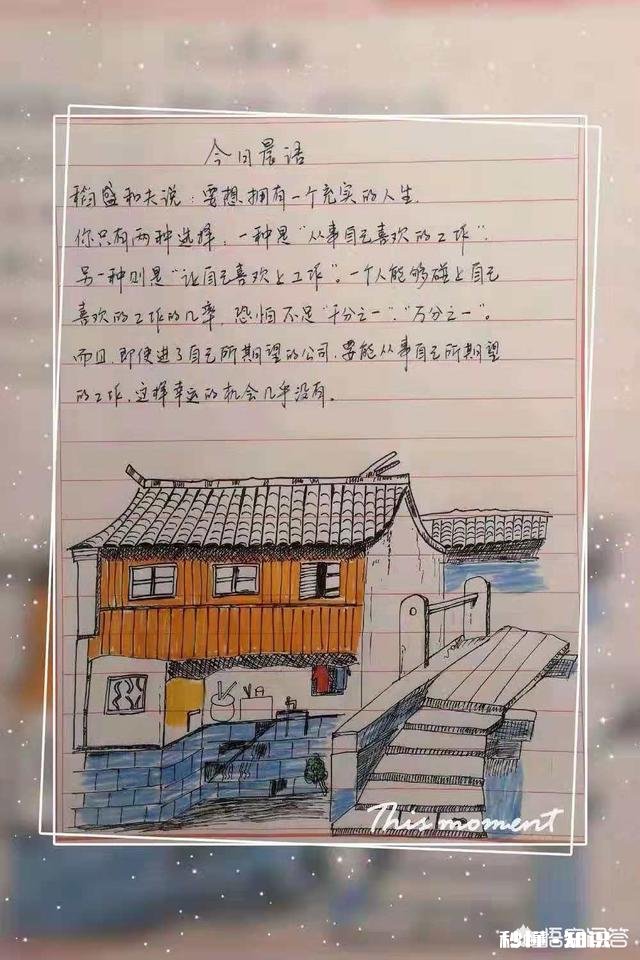 今日晨语
稻盛和夫说：要想拥有一个充实的人生.
你只有两种选择，一种是“从事自己喜欢的工作”.
另一种则是“让自己喜欢上工作”。一个人能够碰上自己
喜欢的工作的几率，恐怕不足“千分之一”.“万分之一”。
而且，即使进了自己所期望的公司，要能从事自己所期望
的工作，这样幸运的机会几乎没有。
This moment
悟空问答
秒懂·知识